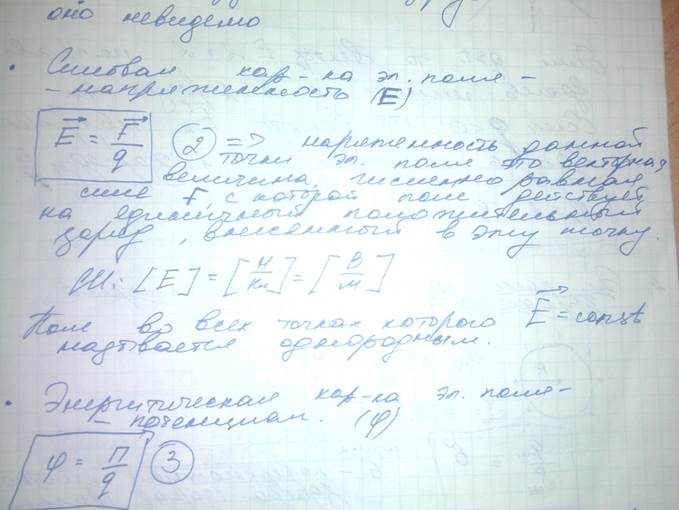 оно невидемо
• Силовая хар-ка эл. поля -
- напряженность (E)
E = F/q (2) => наряженность данной
точки эл. поля это векторная
величина, численно равная
силе F, с которой поле действует
на единичный положительный
заряд, внесённый в эту точку.
СИ: [E] = [Н/Кл] = [В/м]
Поле во всех точках которого E = const
надывается однородным.
• Энергитическая хар-ка эл. поля -
- потенциал. (φ)
φ = П/q (3)